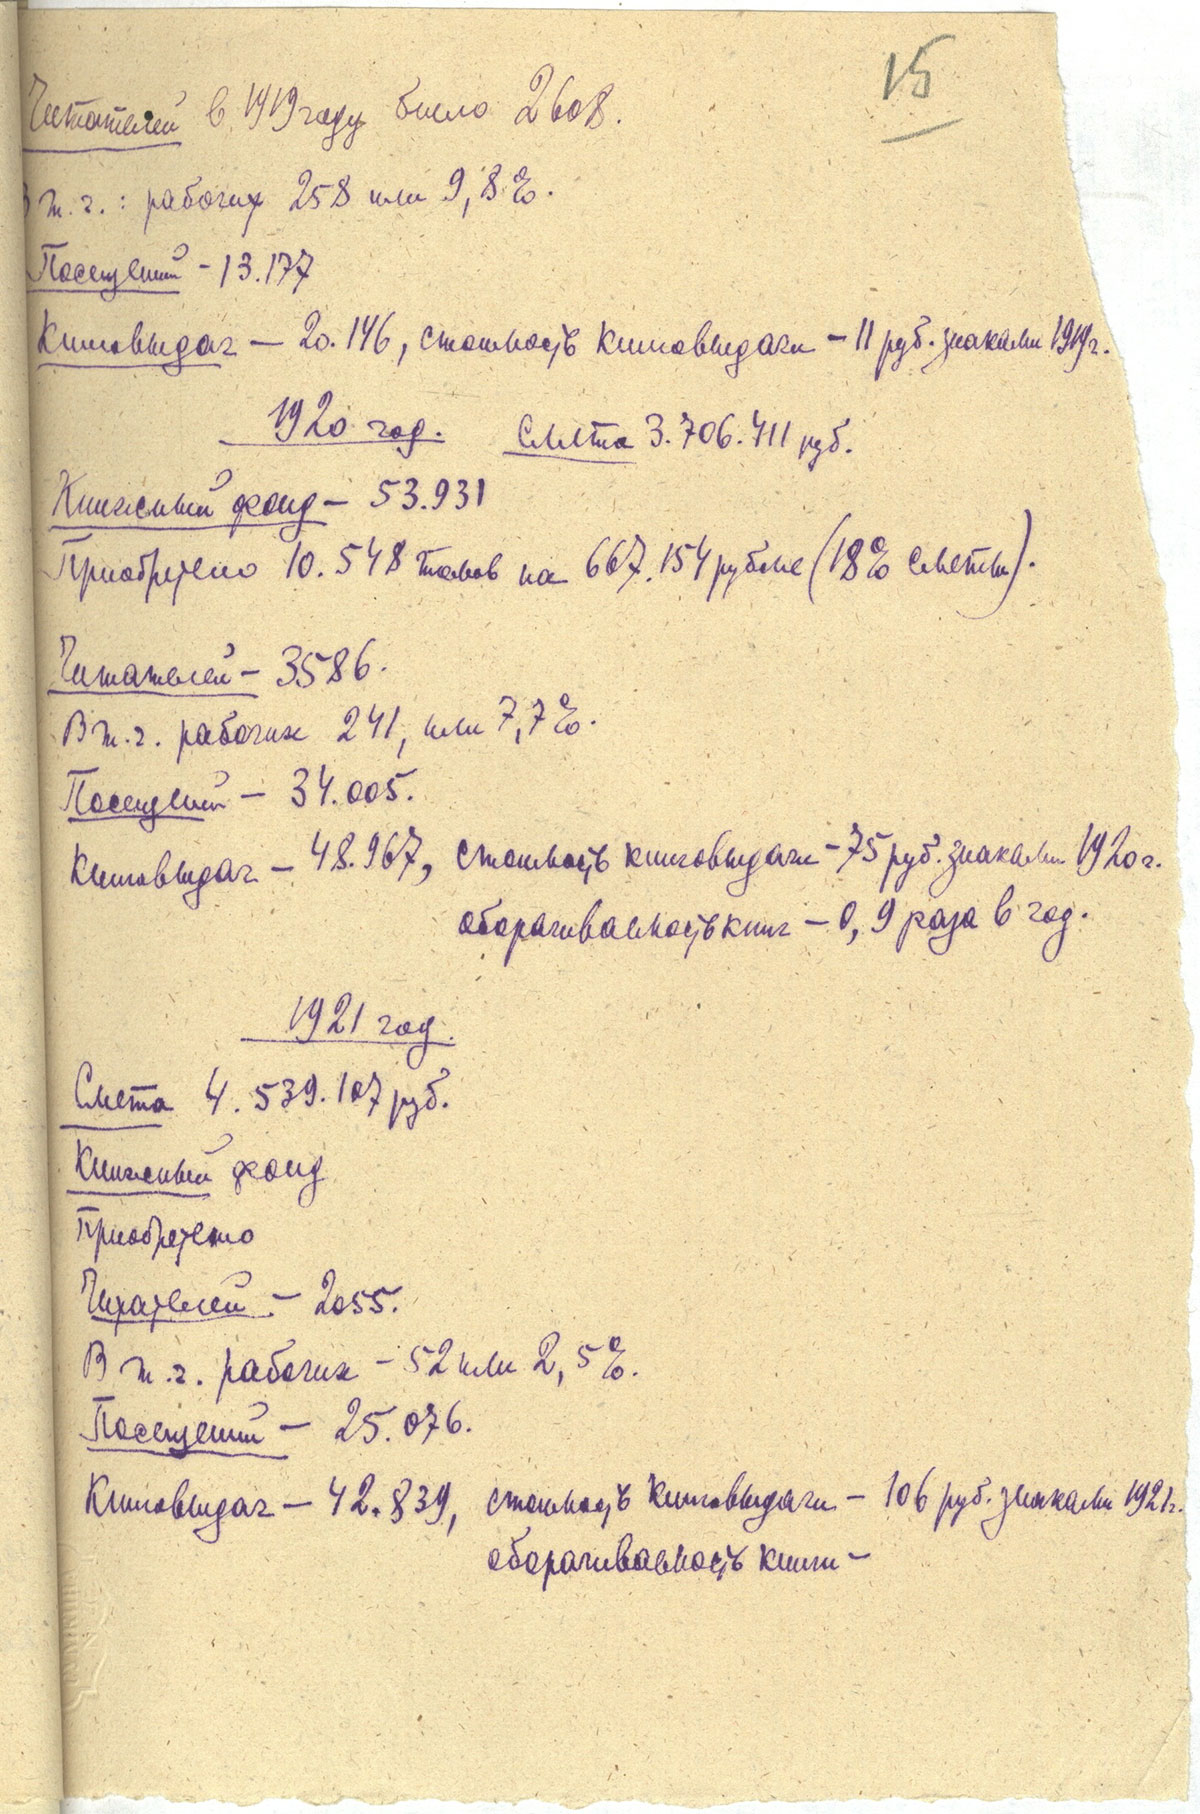 15
Читателей в 1919 году было 2608.
В т.ч.: рабочих 258 или 9,8%.
Посещений - 13.177
Книговыдач — 20.146, стоимость книговыдачи - 11 руб. знаками 1919 г.
1920 год. Смета 3.706.411 руб.
Книжный фонд - 53.931
Приобретено 10.548 томов на 667.154 рубле (18% сметы).
Читателей - 3586.
В т.ч. рабочих 241, или 7,7%.
Посещений - 34.005.
Книговыдач - 48.967, стоимость книговыдачи - 75 руб. знаками 1920 г.
оборачиваемость книг - 0,9 раза в год.
1921 год.
Смета 4.539.107 руб.
Книжный фонд
Приобретено
Читателей - 2055.
В т.ч. рабочих - 52 или 2,5%.
Посещений - 25.076.
Книговыдач - 42.839, стоимость книговыдачи - 106 руб. знаками 1921 г.
оборачиваемость книги -